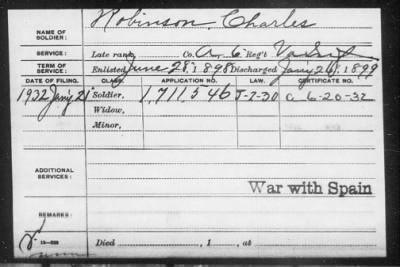 Robinson, Charles
NAME OF SOLDIER:
SERVICE: Late rank, Co. A, 6 Reg't Va Inf
TERM OF SERVICE: Enlisted June 28, 1898 Discharged Jan'y 26, 1899
DATE OF FILING. CLASS. APPLICATION NO. LAW. CERTIFICATE NO.
1932 Jan'y 21 Soldier, 1,711,546 6-20-32
Widow,
Minor,
ADDITIONAL SERVICES:
War with Spain
REMARKS:
Died , 1 , at